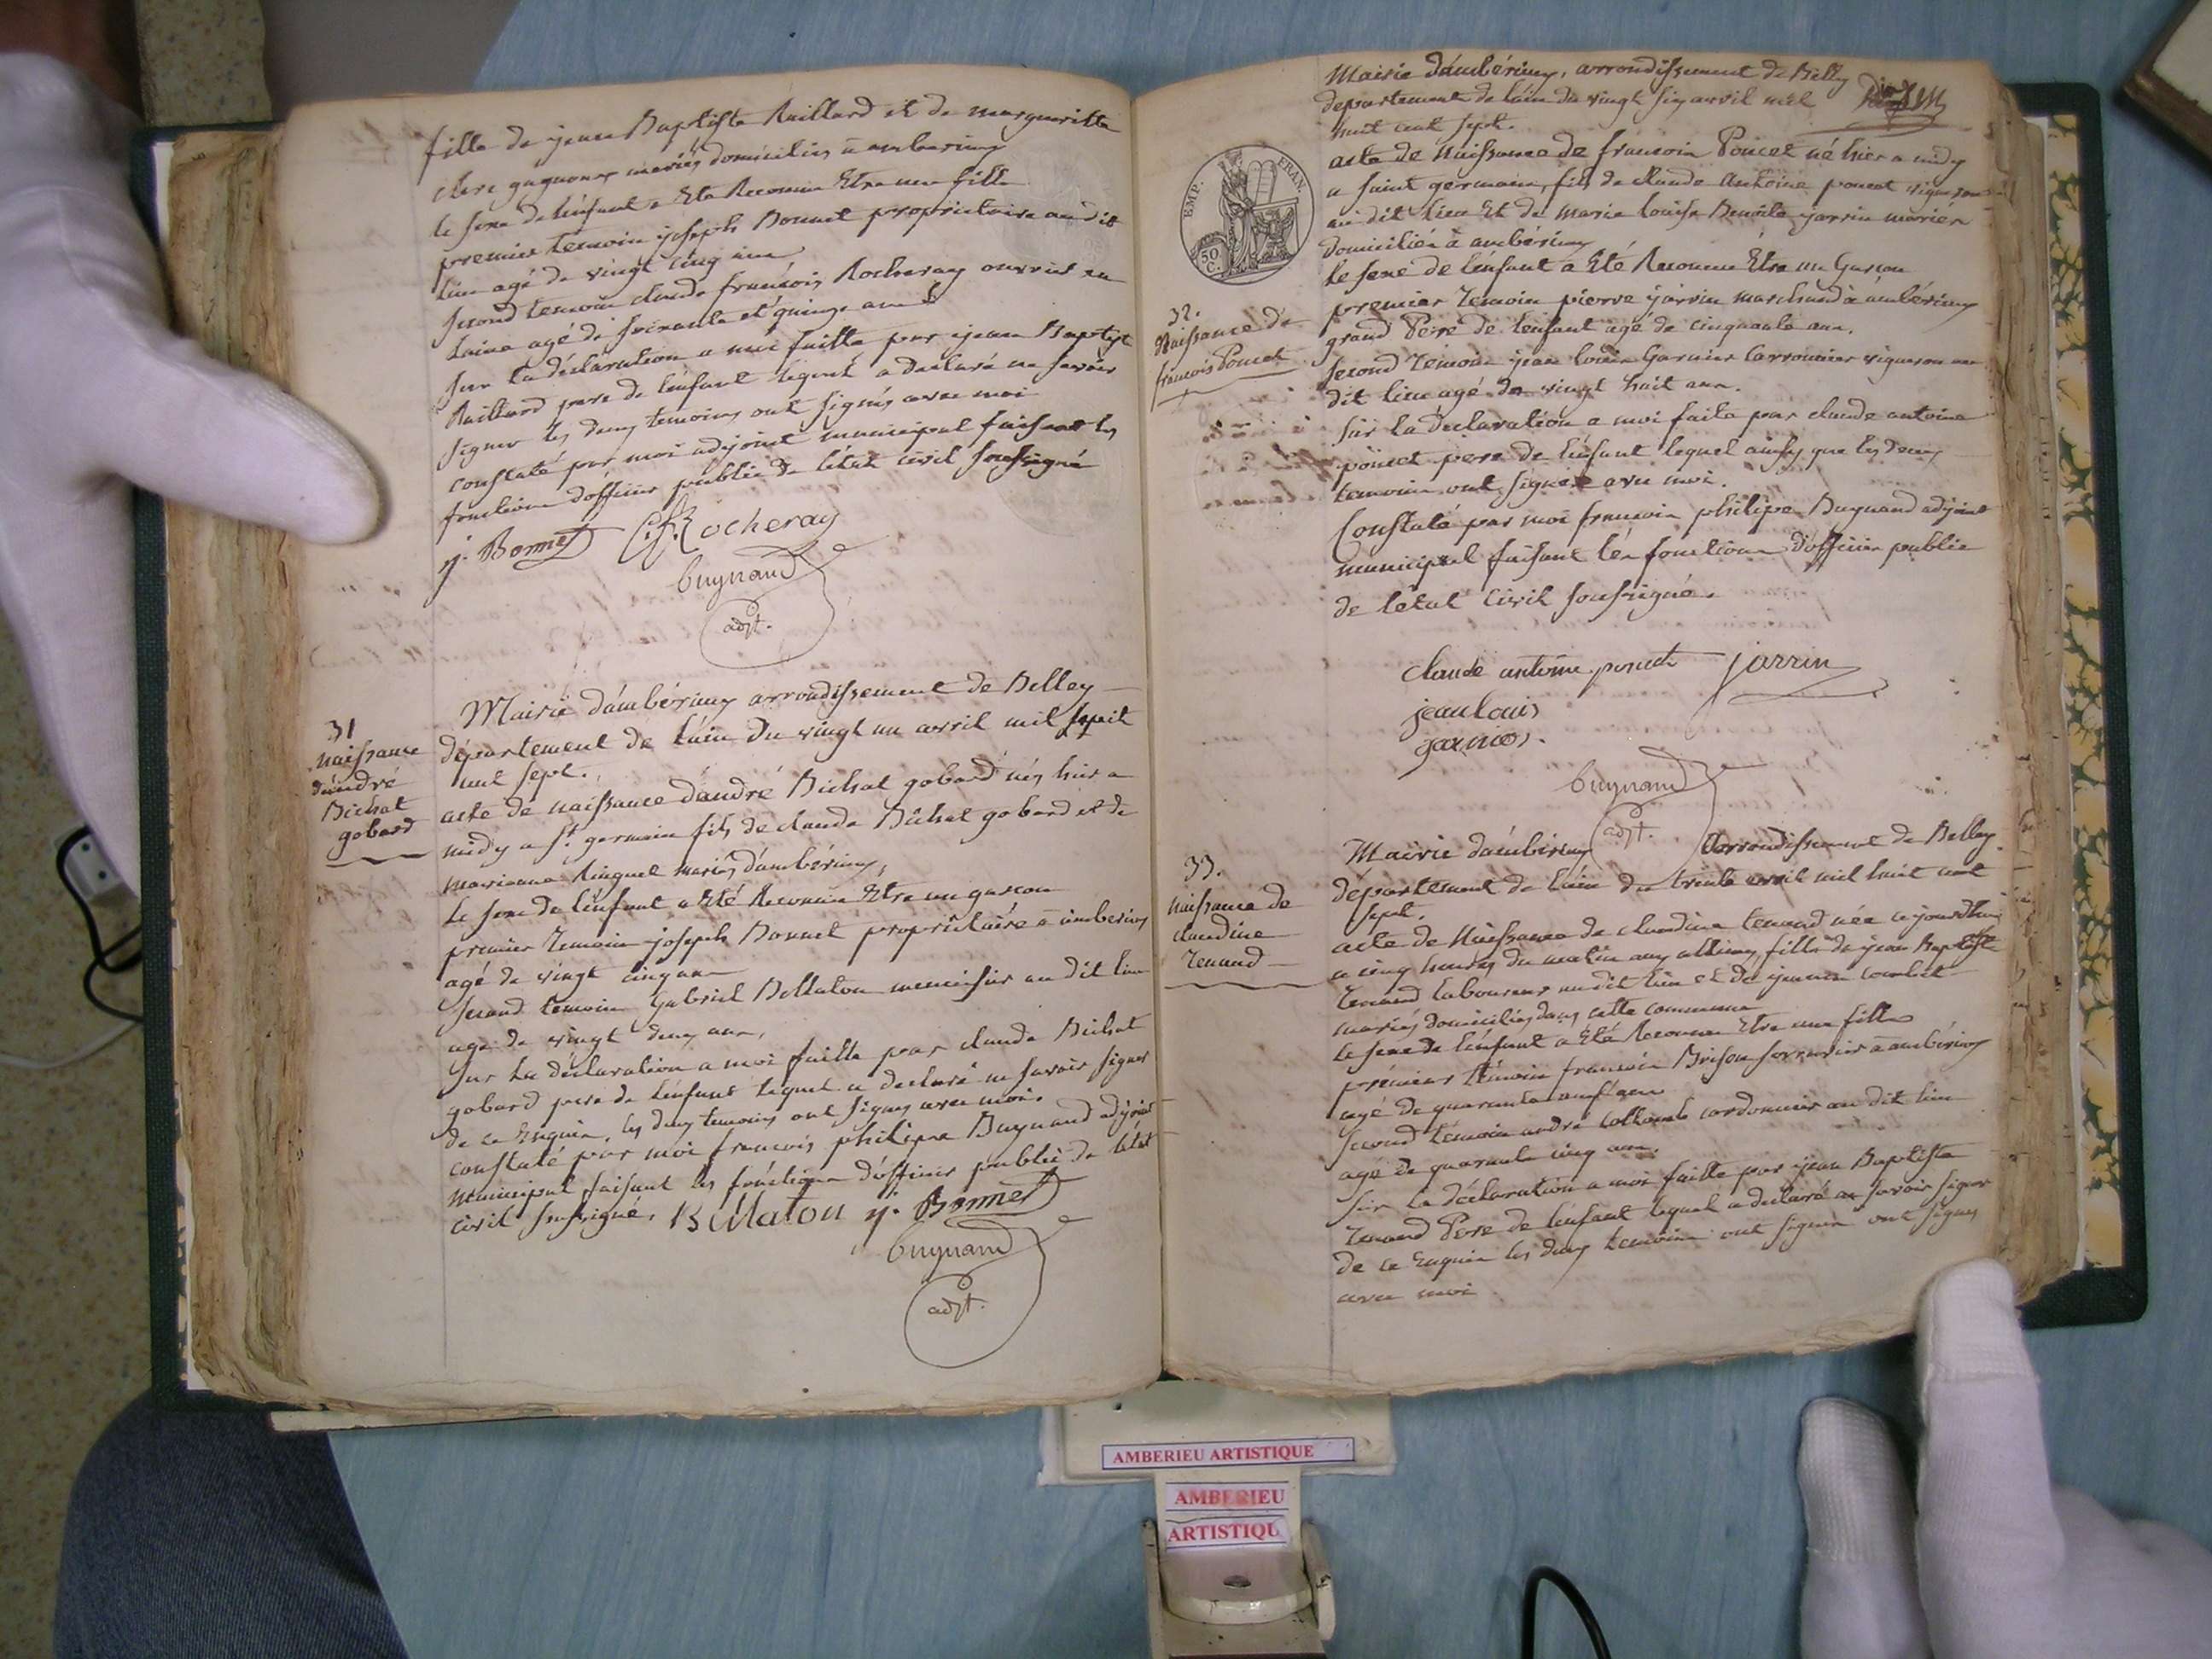 fille de jean Baptiste Raillard et de margueritte
clere gagneurs mariés domiciliés a amberieux
le sexe de lenfant a Eté Reconnu Etre une fille
premier temoin joseph Bonnet proprietaire au dit
lieu agé de vingt cinq ans
second temoin claude francois Rocheray ouvrier en
laine agé de soixante et quinze ans
sur la déclaration a moi faitte par jean Baptiste
Raillard pere de lenfant lequel a declaré ne savoir
signer les deux temoins ont signés avec moi
constaté par moi adjoint municipal faisant les
fonctions dofficier public de létat civil soussigné
j. Bonnet C.f. Rocheray
buynand
adjt.
31
naissance
dandré
Bichat
gobard
Mairie dambérieux arrondissement de Belley
département de lain du vingt un avril mil huit
cent sept.
acte de naissance dandré Bichat gobard nés hier a
midy a st. germain fils de claude Bichat gobard et de
marianne Ringuet mariés dambérieux,
Le sexe de lenfant a Eté Reconnu Etre un garcon
premier temoin joseph Bonnet propriétaire a amberieux
agé de vingt cinq ans
second temoin Gabriel Bellaton menuisier au dit lieu
agé de vingt deux ans,
sur la déclaration a moi faitte par claude Bichat
gobard pere de lenfant lequel a declaré ne savoir signer
de ce Enquis, les deux temoins ont signes avec moi.
constaté par moi francois philipe Buynand adjoint
municipal faisant les fonctions dofficier public de létat
civil soussigné, Bellaton j. Bonnet
buynand
adjt.
Mairie dambérieux, arrondissement de Belley
departement de lain du vingt six avril mil
huit cent sept.
EMP. FRAN.
50 C.
32.
Naissance de
francois Poncet
acte de Naissance de francois Poncet né hier a midy
a saint germain, fils de claude Antoine poncet vigneron
au dit lieu Et de marie louise Benoite jarrin mariés
domiciliés à ambérieux
le sexe de lenfant a Eté Reconnu Etre un Garcon
premier temoin pierre jarrin marchand à ambérieux
grand Pere de lenfant agé de cinquante ans.
second temoin jean louis Garnier vigneron au
dit lieu agé de vingt huit ans.
sur la déclaration a moi faite par claude antoine
poncet pere de lenfant lequel ainsy que les deux
temoins ont signés avec moi.
Constaté par moi francois philipe Buynand adjoint
municipal faisant les fonctions dofficier public
de létat civil soussigné.
claude antoine poncet jarrin
jean louis
garnier.
buynand
adjt.
33.
naissance de
claudine
Tenand
Mairie dambérieux arrondissement de Belley
département de lain du trente avril mil huit cent
sept.
acte de Naissance de claudine tenand née ce jourdhui
a cinq heures du matin aux allimes, fille de jean Baptiste
Tenand laboureur au dit lieu et de jeanne
mariés domiciliés dans cette commune
le sexe de lenfant a Eté Reconnu Etre une fille
prémier témoin francois Brison serrurier a ambérieux
agé de quarante neuf ans
second témoin andré collomb cordonnier au dit lieu
agé de quarante cinq ans.
sur la déclaration a moi faitte par jean Baptiste
Tenand Pere de lenfant lequel a declaré ne savoir signer
de ce Enquis les deux temoins ont signés ont signes
avec moi
AMBERIEU ARTISTIQUE
AMBERIEU
ARTISTIQU